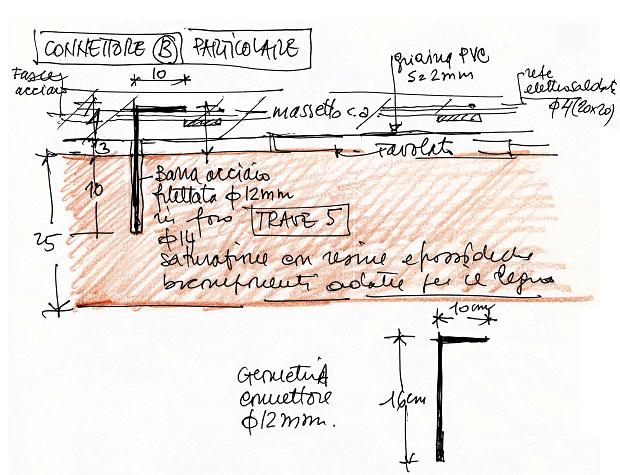 CONNETTORE B PARTICOLARE
10
guaina PVC
S=2mm
Fasce
acciaio
rete
elettrosaldata
Φ4(20x20)
massetto c.a
3
Tavolato
10
25
Barra acciaio
filettata Φ12mm
in foro
Φ14
TRAVE 5
saturazione con resine epossidiche
bicomponenti adatte per il legno
10cm
16cm
Geometria
connettore
Φ12mm.